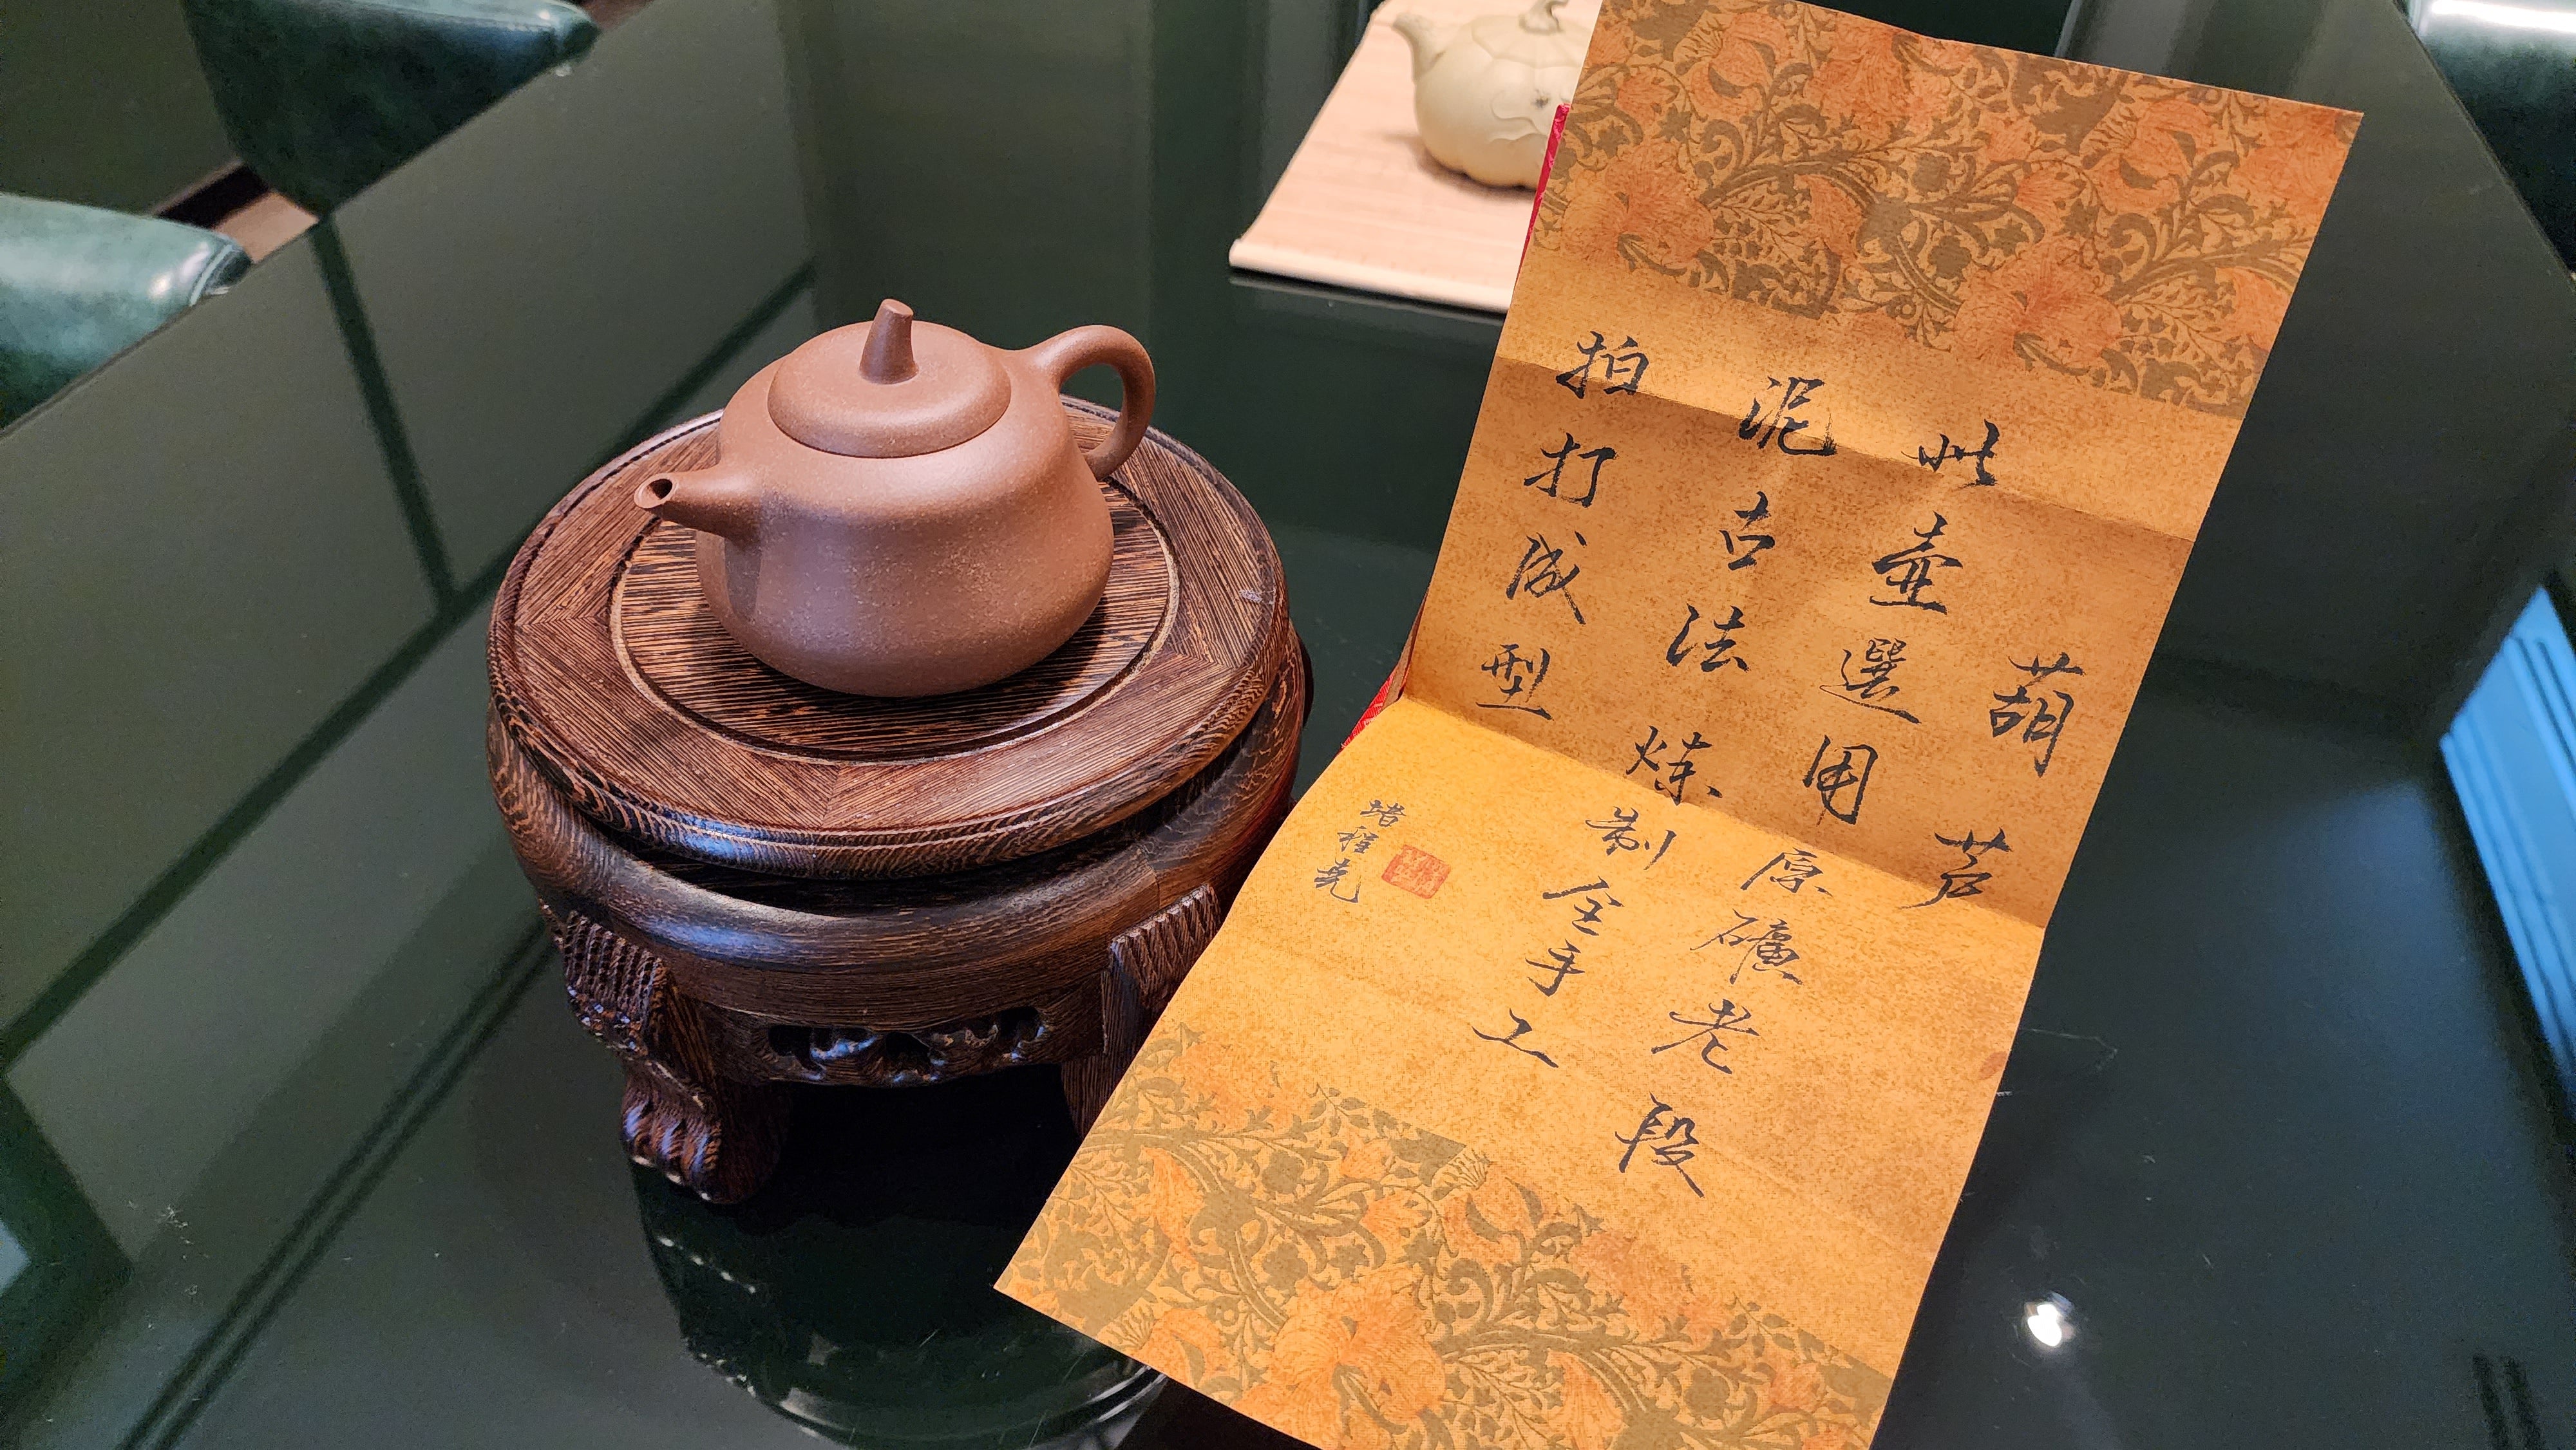 葫芦
此壶選用原礦老段
泥古法炼制全手工
拍打成型
堵程尧